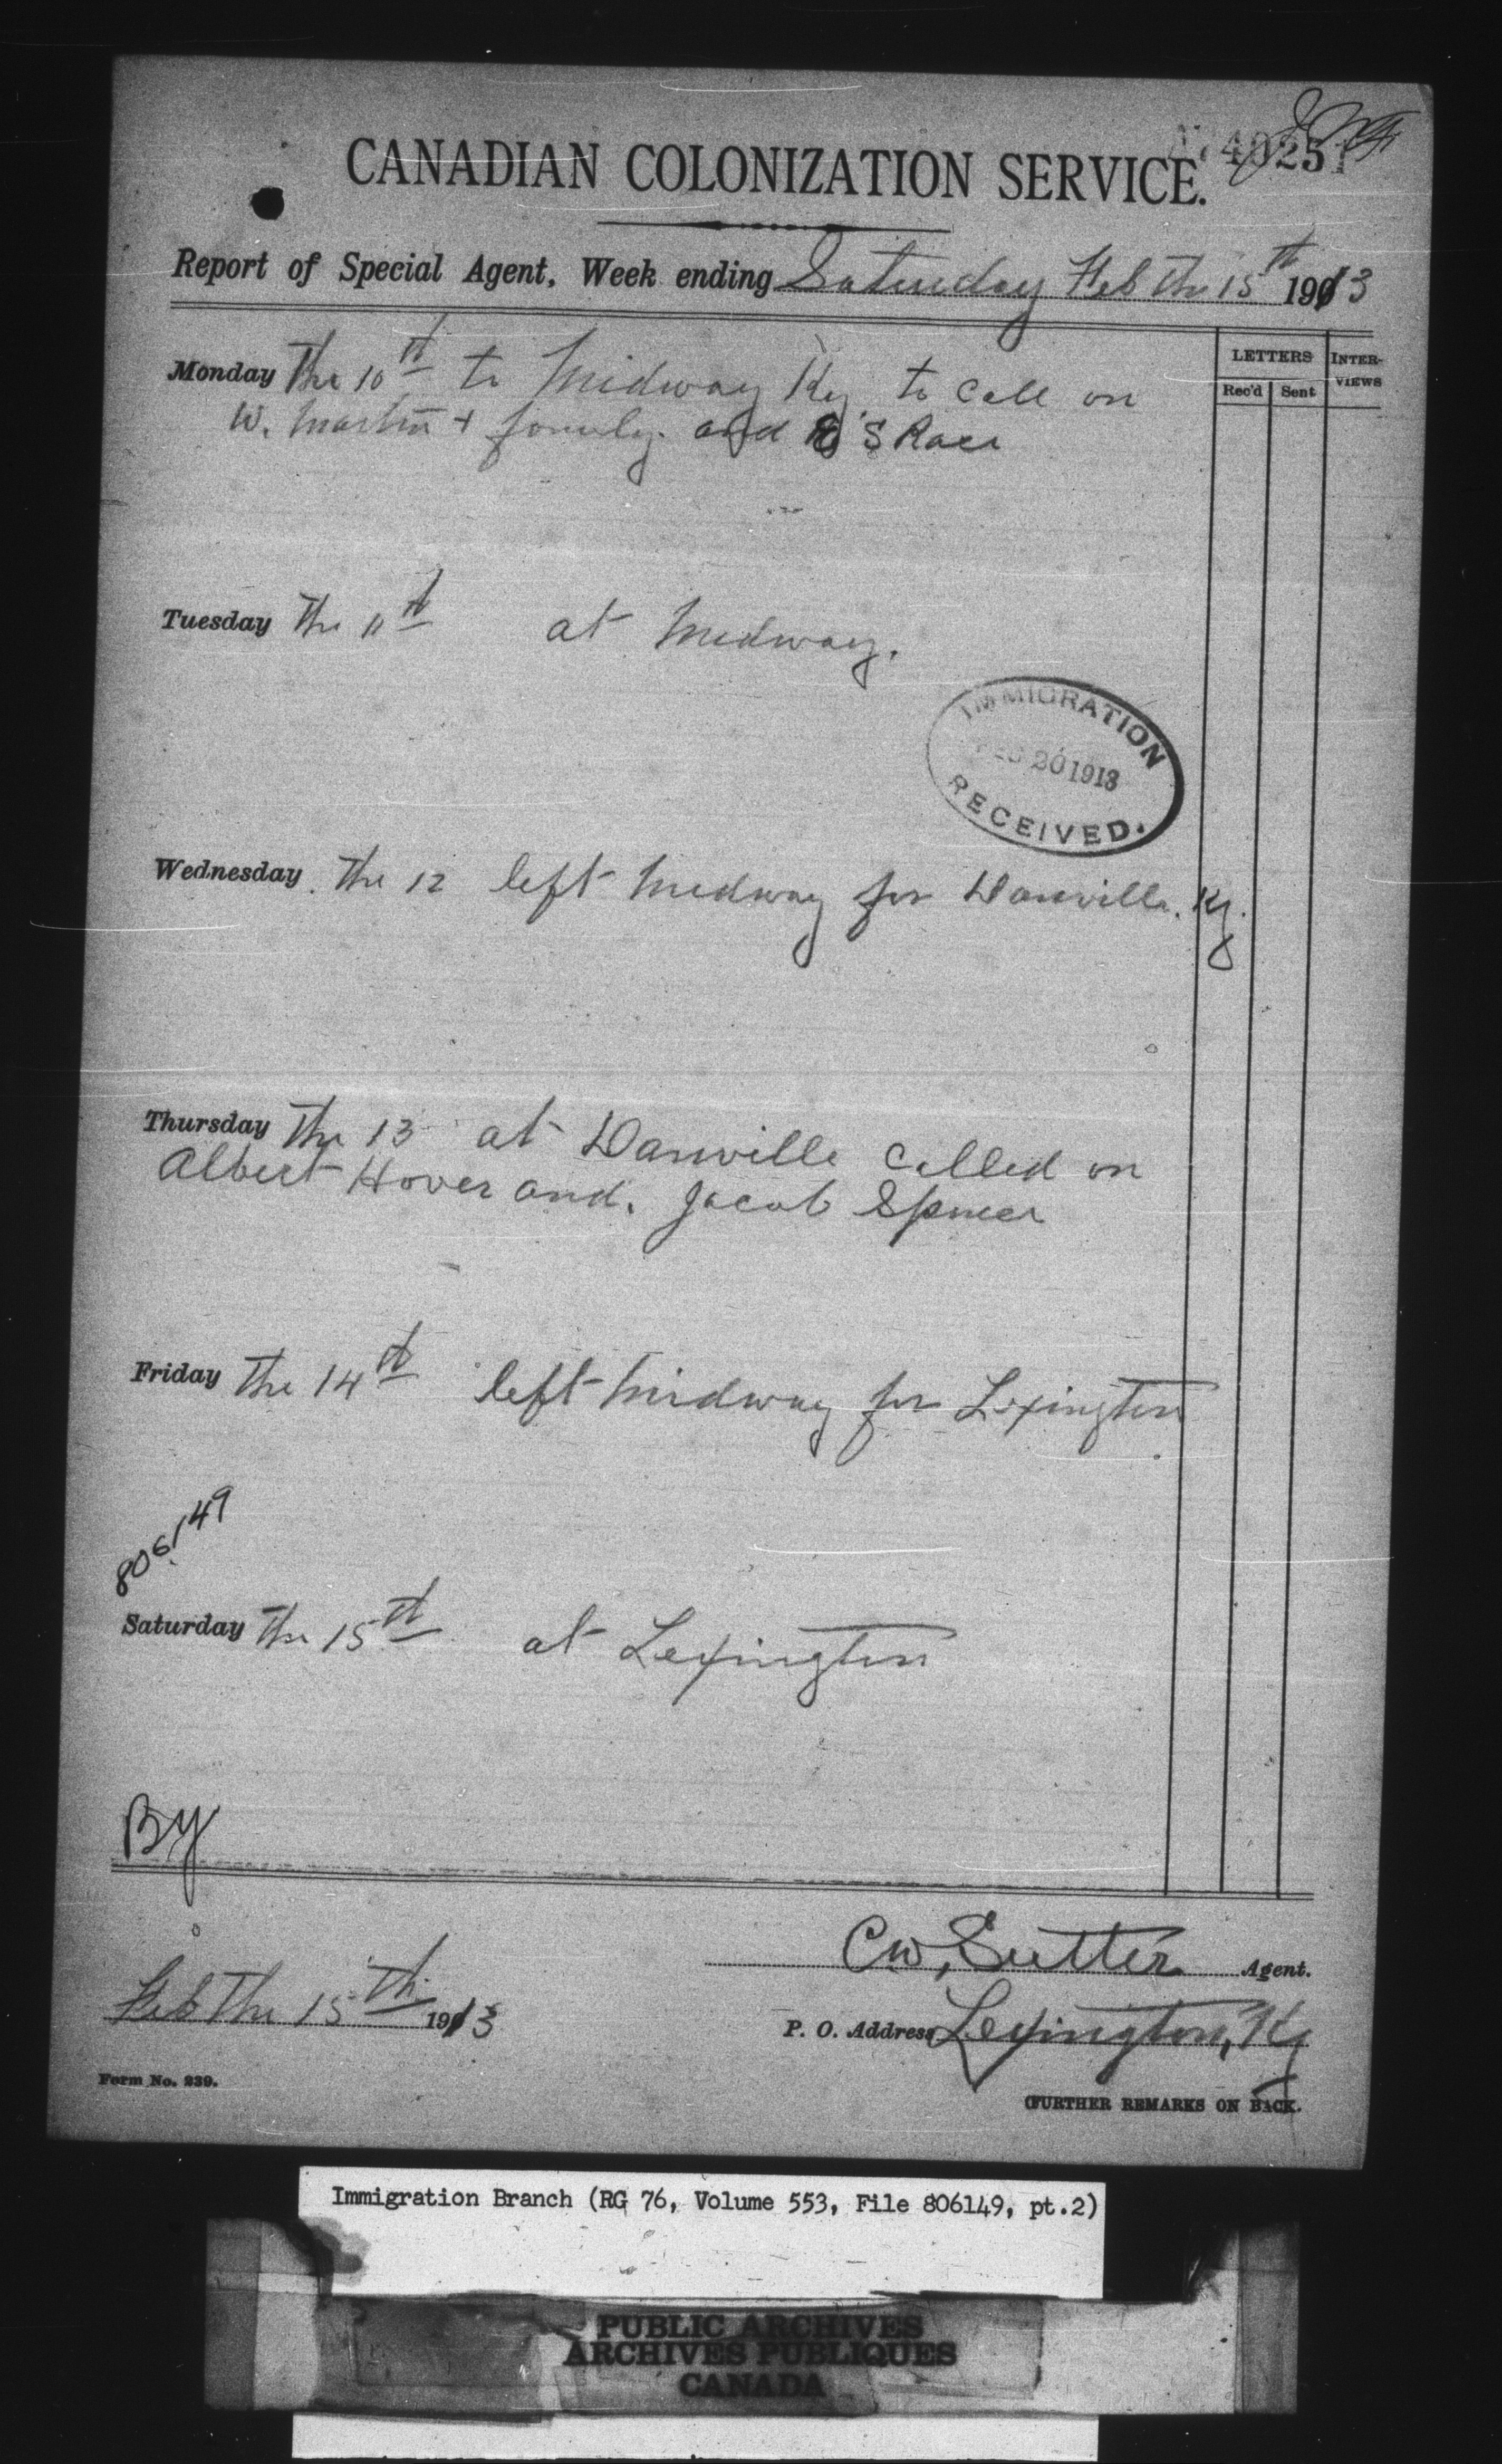 CANADIAN COLONIZATION SERVICE.
Report of Special Agent, Week ending Saturday Feb the 15th 1913
LETTERS
INTER-VIEWS
Rec'd Sent
Monday The 10th to Midway Ky to call on
W. Martin + family. and S Race
Tuesday The 11th at Midway.
IMMIGRATION
FEB 20 1913
RECEIVED.
Wednesday The 12 left Midway for Danville. Ky.
Thursday The 13 at Danville called on
Albert Hover and. Jacob Spencer
Friday The 14th left Midway for Lexington
806149
Saturday The 15th at Lexington
By
C W, Sutter Agent.
Feb The 15th 1913
P. O. Address Lexington, Ky
Form No. 239.
(FURTHER REMARKS ON BACK.
Immigration Branch (RG 76, Volume 553, File 806149, pt.2)
PUBLIC ARCHIVES
ARCHIVES PUBLIQUES
CANADA